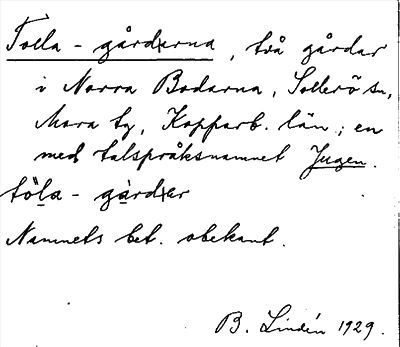 Tolla-gårdarna, två gårdar
i Norra Bodarna, Sollerö sn,
Mora tg, Kopparb. län; en
med talspråksnamnet Jugen.
töla-gårdar
Namnets bet. obekant.
B. Lindén 1929.